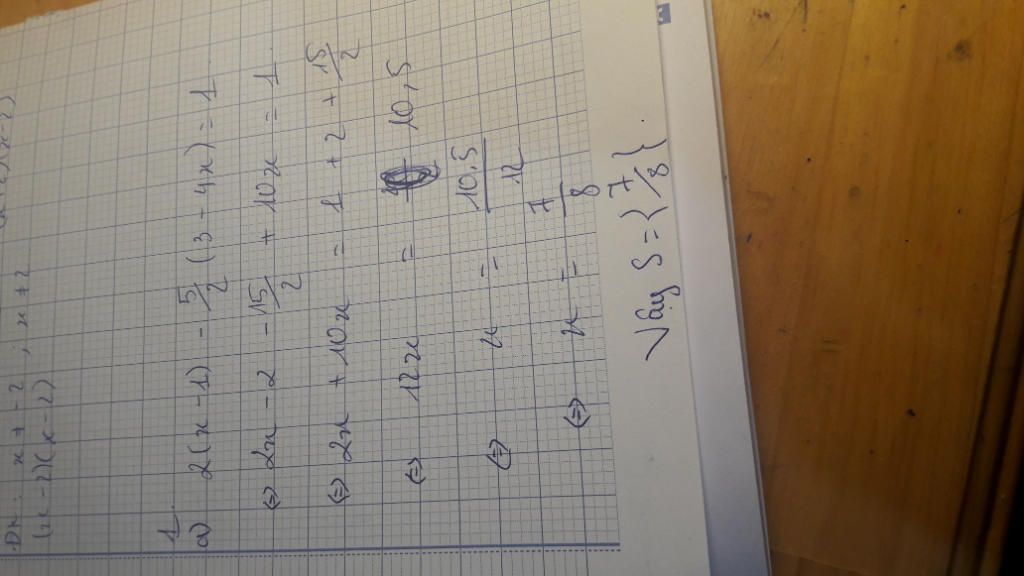 ĐK: x ≠ -2, x ≠ 2
(x-2)(x-2)
1.
a) 2(x-1) - 5/2 (3 - 4x) = 1
(=) 2x - 2 - 15/2 + 10x = 1
(=) 2x + 10x = 1 + 2 + 15/2
(=) 12x = 10,5
(=) x = 10,5/12
(=) x = 7/8
Vậy S = {7/8}.